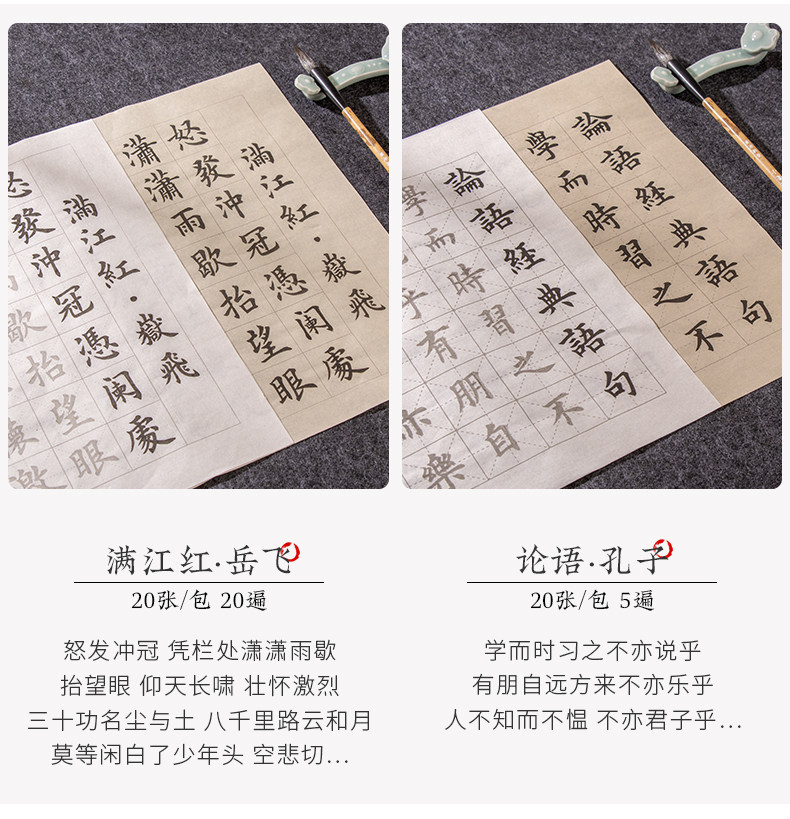 滿江紅·嶽飛
怒發沖冠憑闌處
瀟瀟雨歇抬望眼
滿江紅·嶽飛
怒發沖冠憑闌處
歇抬望眼
激
論語經典語句
學而時習之不
論語經典語句
學而時習之不
乎有朋自
亦樂
满江红·岳飞
20张/包 20遍
怒发冲冠 凭栏处潇潇雨歇
抬望眼 仰天长啸 壮怀激烈
三十功名尘与土 八千里路云和月
莫等闲白了少年头 空悲切...
论语·孔子
20张/包 5遍
学而时习之不亦说乎
有朋自远方来不亦乐乎
人不知而不愠 不亦君子乎...